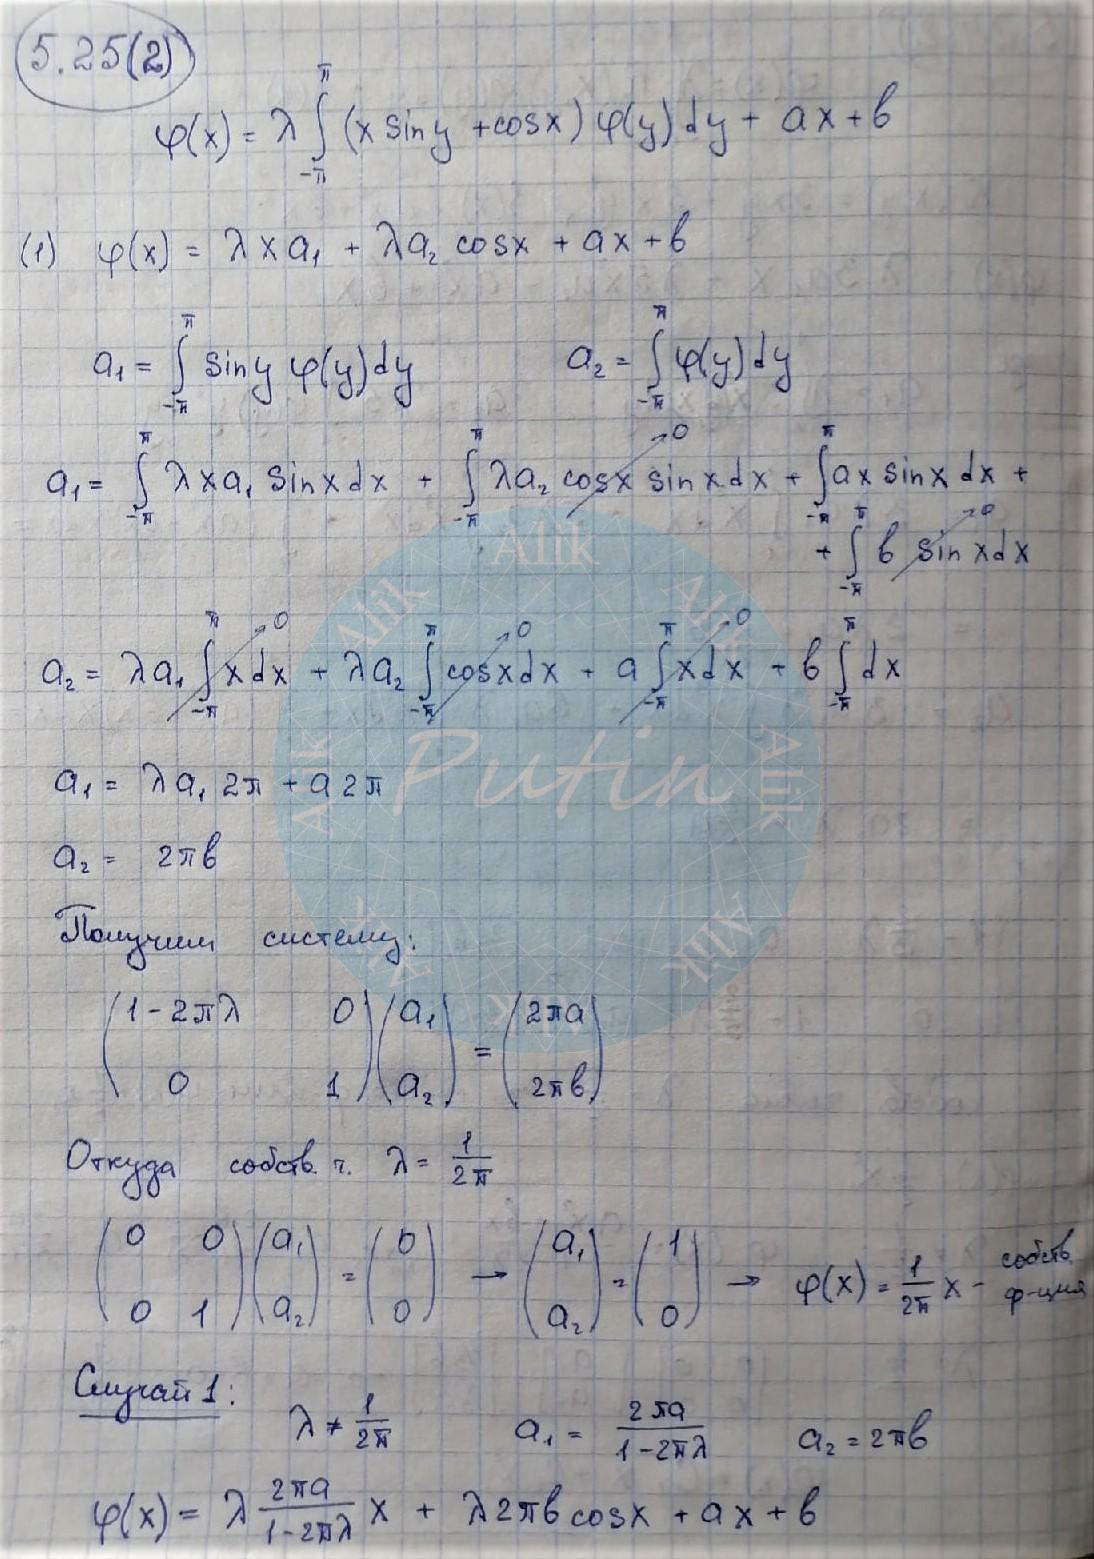 5.25(2)
φ(x) = λ ∫_{-π}^{π} (x sin y + cos x) φ(y) dy + ax + b
(1) φ(x) = λ x a₁ + λ a₂ cos x + ax + b
a₁ = ∫_{-π}^{π} sin y φ(y) dy a₂ = ∫_{-π}^{π} φ(y) dy
a₁ = ∫_{-π}^{π} λ x a₁ sin x dx + ∫_{-π}^{π} λ a₂ cos x sin x dx → 0 + ∫_{-π}^{π} ax sin x dx +
+ ∫_{-π}^{π} b sin x dx → 0
a₂ = λ a₁ ∫_{-π}^{π} x dx → 0 + λ a₂ ∫_{-π}^{π} cos x dx → 0 + a ∫_{-π}^{π} x dx → 0 + b ∫_{-π}^{π} dx
a₁ = λ a₁ 2π + a 2π
a₂ = 2πb
Получим систему:
(1-2πλ 0; 0 1) (a₁; a₂) = (2πa; 2πb)
Откуда собств. ч. λ = 1/2π
(0 0; 0 1) (a₁; a₂) = (0; 0) → (a₁; a₂) = (1; 0) → φ(x) = 1/2π x - собств. ф-ция
Случай 1:
λ ≠ 1/2π a₁ = 2πa/(1-2πλ) a₂ = 2πb
φ(x) = λ 2πa/(1-2πλ) x + λ 2πb cos x + ax + b
Putin
Alik
Alik
Alik
Alik
Alik
Alik
Alik
Alik